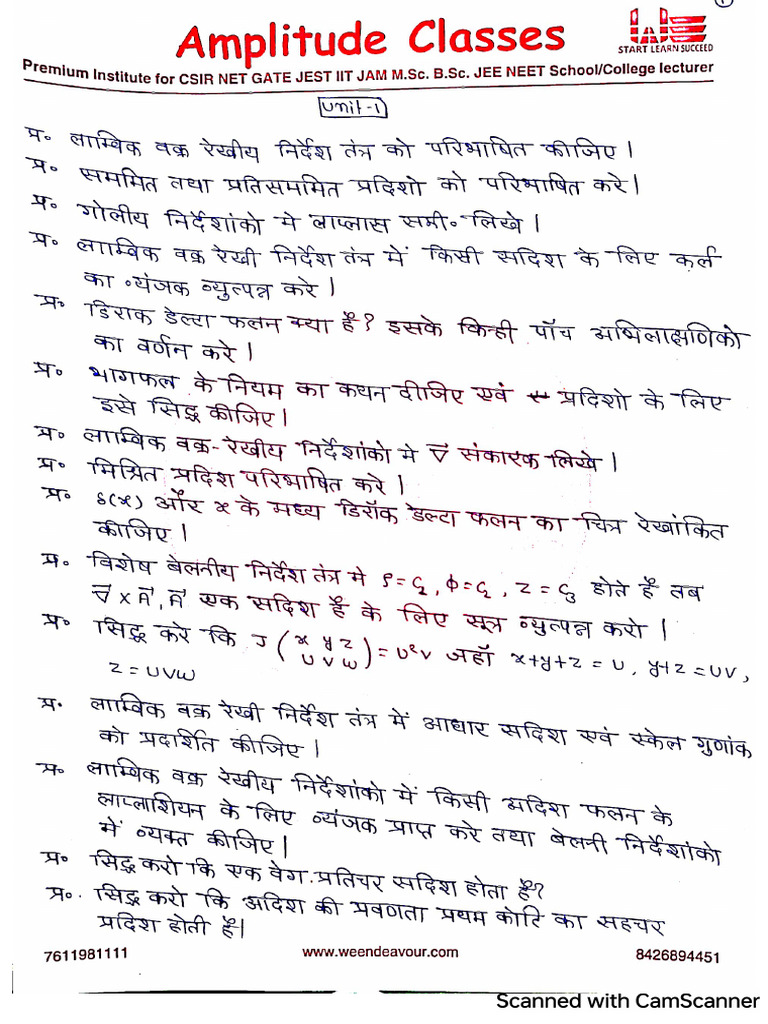 Amplitude Classes
START LEARN SUCCEED
Premium Institute for CSIR NET GATE JEST IIT JAM M.Sc. B.Sc. JEE NEET School/College lecturer
Unit-1
प्र॰ लाम्विक वक्र रेखीय निर्देश तंत्र को परिभाषित कीजिए।
प्र॰ सममित तथा प्रतिसममित प्रदिशो को परिभाषित करे।
प्र॰ गोलीय निर्देशांको मे लाप्लास समी॰ लिखे।
प्र॰ लाम्विक वक्र रेखी निर्देश तंत्र में किसी सदिश के लिए कर्ल
का व्यंजक व्युत्पन्न करे।
प्र॰ डिराक डेल्टा फलन क्या है? इसके किन्ही पाँच अभिलाक्षणिको
का वर्णन करे।
प्र॰ भागफल के नियम का कथन दीजिए एवं प्रदिशो के लिए
इसे सिद्ध कीजिए।
प्र॰ लाम्विक वक्र-रेखीय निर्देशांको मे ∇⃗ संकारक लिखे।
प्र॰ मिश्रित प्रदिश परिभाषित करे।
प्र॰ δ(x) और x के मध्य डिरॉक डेल्टा फलन का चित्र रेखांकित
कीजिए।
प्र॰ विशेष बेलनीय निर्देश तंत्र मे ρ=C₂, ϕ=C₂, z=C₃ होते है तब
∇⃗ × A⃗, A⃗ एक सदिश है के लिए सूत्र व्युत्पन्न करो।
प्र॰ सिद्ध करे कि J (x y z / u v w) = u²v जहाँ x+y+z = u, y+z = uv,
z = uvw
प्र॰ लाम्विक वक्र रेखी निर्देश तंत्र में आधार सदिश एवं स्केल गुणांक
को प्रदार्शित कीजिए।
प्र॰ लाम्विक वक्र रेखीय निर्देशांको में किसी अदिश फलन के
लाप्लाशियन के लिए व्यंजक प्राप्त करे तथा बेलनी निर्देशांको
में व्यक्त कीजिए।
प्र॰ सिद्ध करो कि एक वेग प्रतिचर सदिश होता है?
प्र॰ सिद्ध करो कि अदिश की प्रवणता प्रथम कोटि का सहचर
प्रदिश होती है।
7611981111 www.weendeavour.com 8426894451
Scanned with CamScanner